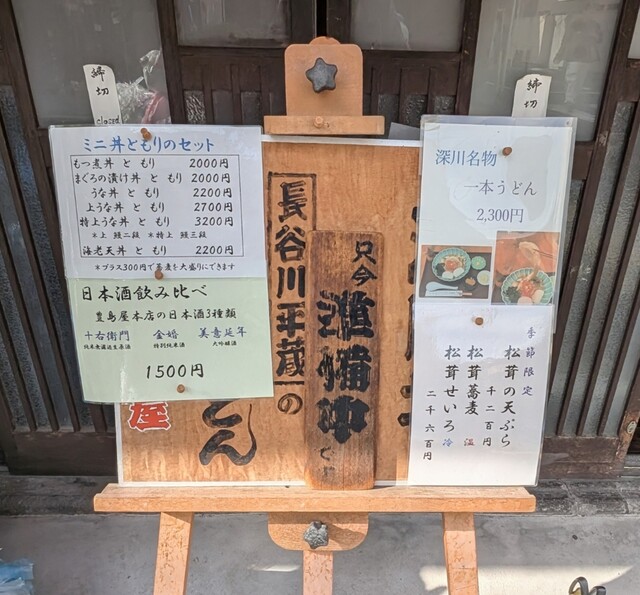 締切
closed
ミニ丼ともりのセット
もつ煮丼 と もり 2000円
まぐろの漬け丼 と もり 2000円
うな丼 と もり 2200円
上うな丼 と もり 2700円
特上うな丼 と もり 3200円
*上 鰻二段 *特上 鰻三段
海老天丼 と もり 2200円
*プラス300円で蕎麦を大盛りにできます
日本酒飲み比べ
豊島屋本店の日本酒3種類
十右衛門 金婚 美意延年
純米無濾過生原酒 特別純米酒 大吟醸酒
1500円
屋
どん
長谷川平蔵の
只今
準備中
です
締切
深川名物
一本うどん
2,300円
季節限定
松茸の天ぷら
千二百円
松茸蕎麦 温
松茸せいろ 冷
二千六百円